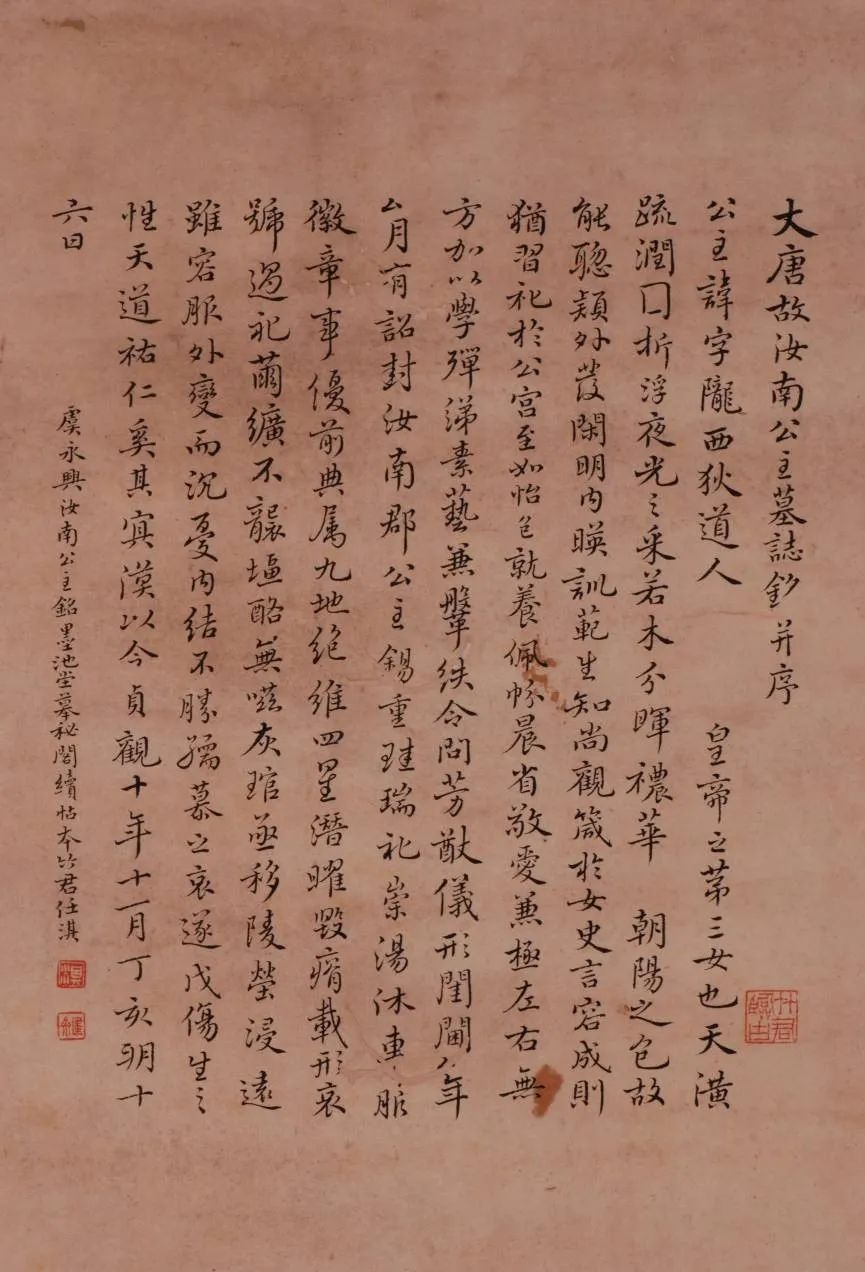 大唐故汝南公主墓誌鈔并序
公主諱字隴西狄道人 皇帝之苐三女也天潢
疏潤冂折浮夜光之采若木分暉襛華 朝陽之色故
能聰穎外發閑明内暎訓範生知尚觀箴於女史言容成則
猶習礼於公宮至如怡色就養佩帉晨省敬愛兼極左右無
方加以學殫綈素藝兼鞶紩令問芳猷儀形閨閫八年
厶月有詔封汝南郡公主錫重珪瑞礼崇湯沐車服
徽章事優前典属九地絶維四星潛曜毀瘠載形哀
號過礼繭纊不襲塩酪無嗞灰琯亟移陵塋浸遠
雖容服外變而沉憂内結不勝孺慕之哀遂戊傷生之
性天道祐仁奚其寘漠以今貞觀十年十一月丁亥朔十
六日
虞永興汝南公主銘墨池堂摹秘閣續帖本竹君任淇
竹君臨古